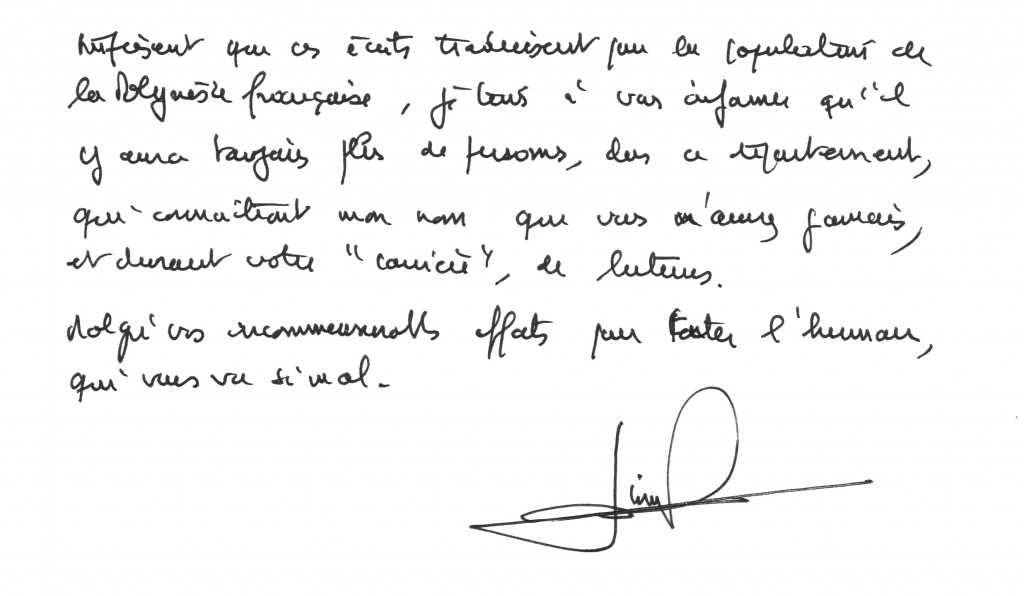 que ces écrits traduisent pour la population de
la Polynésie française, je tiens à vous informer qu'il
y aura toujours plus de personnes, dans ce département,
qui connaîtront mon nom que vous n'aurez jamais,
et durant votre "carrière", de lecteurs.
Malgré vos incommensurables efforts pour tenter l'humour,
qui vous va si mal.